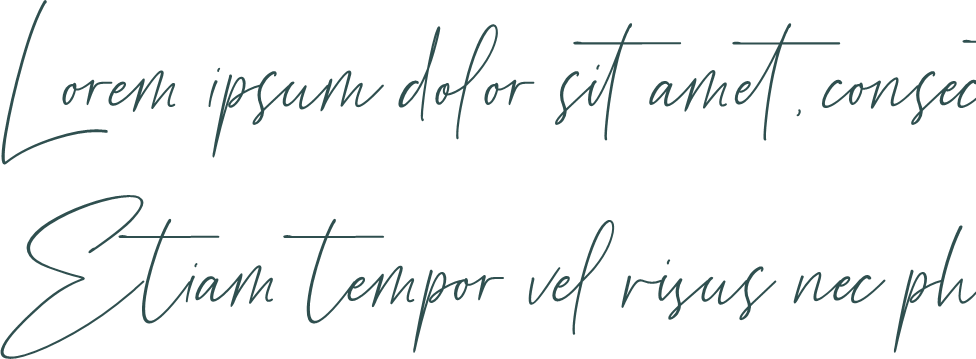 Lorem ipsum dolor sit amet, consec
Etiam tempor vel risus nec ph